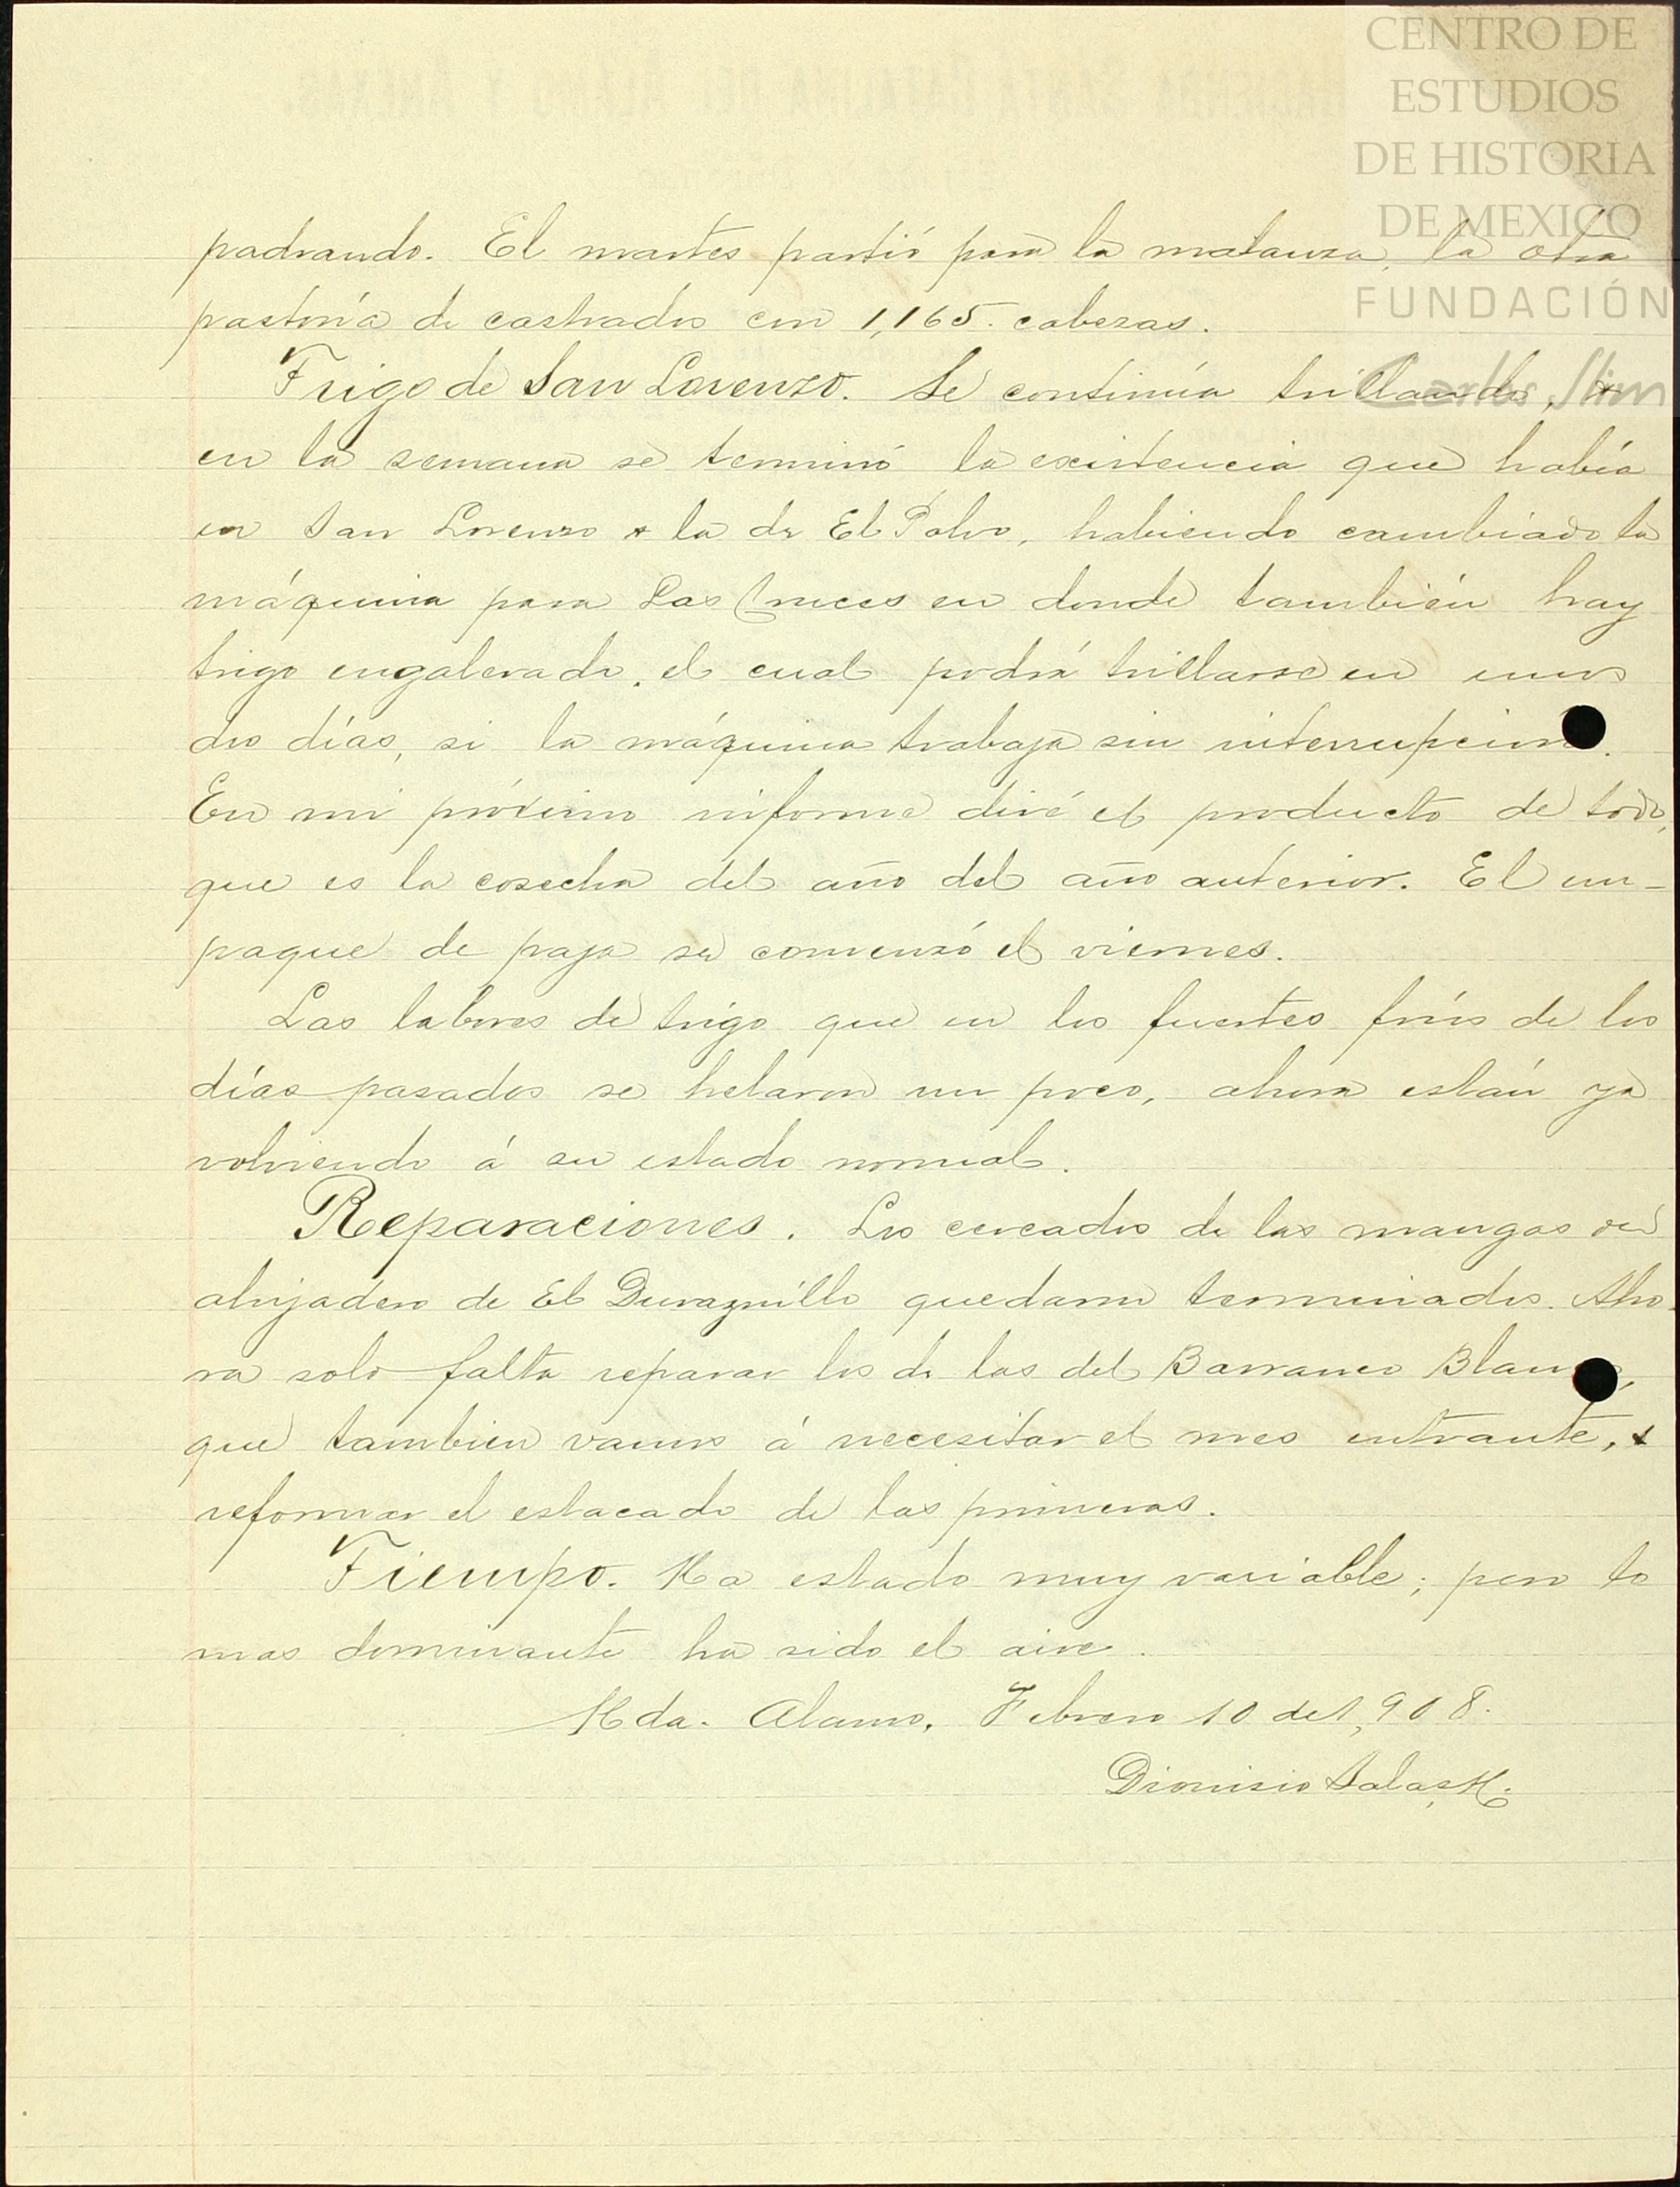 CENTRO DE
ESTUDIOS
DE HISTORIA
DE MEXICO
FUNDACIÓN
Carlos Slim
padrando. El martes partió para la matanza, la otra
pastoría de castrados con 1,165. cabezas.
Trigo de San Lorenzo. Se continúa trillando, &
en la semana se terminó la existencia que había
en San Lorenzo & la de El Polvo, habiendo cambiado la
máquina para Las Cruces en donde también hay
trigo engalerado, el cual podrá trillarse en unos
dos días, si la máquina trabaja sin interrupcion.
En mi próximo informe diré el producto de todo,
que es la cosecha del año del año anterior. El em-
paque de paja se comenzó el viernes.
Las labores de trigo que en los fuertes fríos de los
días pasados se helaron un poco, ahora están ya
volviendo á su estado normal.
Reparaciones. Los cercados de las mangas del
ahijadero de El Duraznillo quedaron terminados. Aho-
ra solo falta reparar los de las del Barranco Blanco,
que tambien vamos á necesitar el mes entrante, &
reformar el estacado de las primeras.
Tiempo. Ha estado muy variable; pero lo
mas dominante ha sido el aire.
Hda. Alamo, Febrero 10 de 1,908.
Dionisio Salas H.